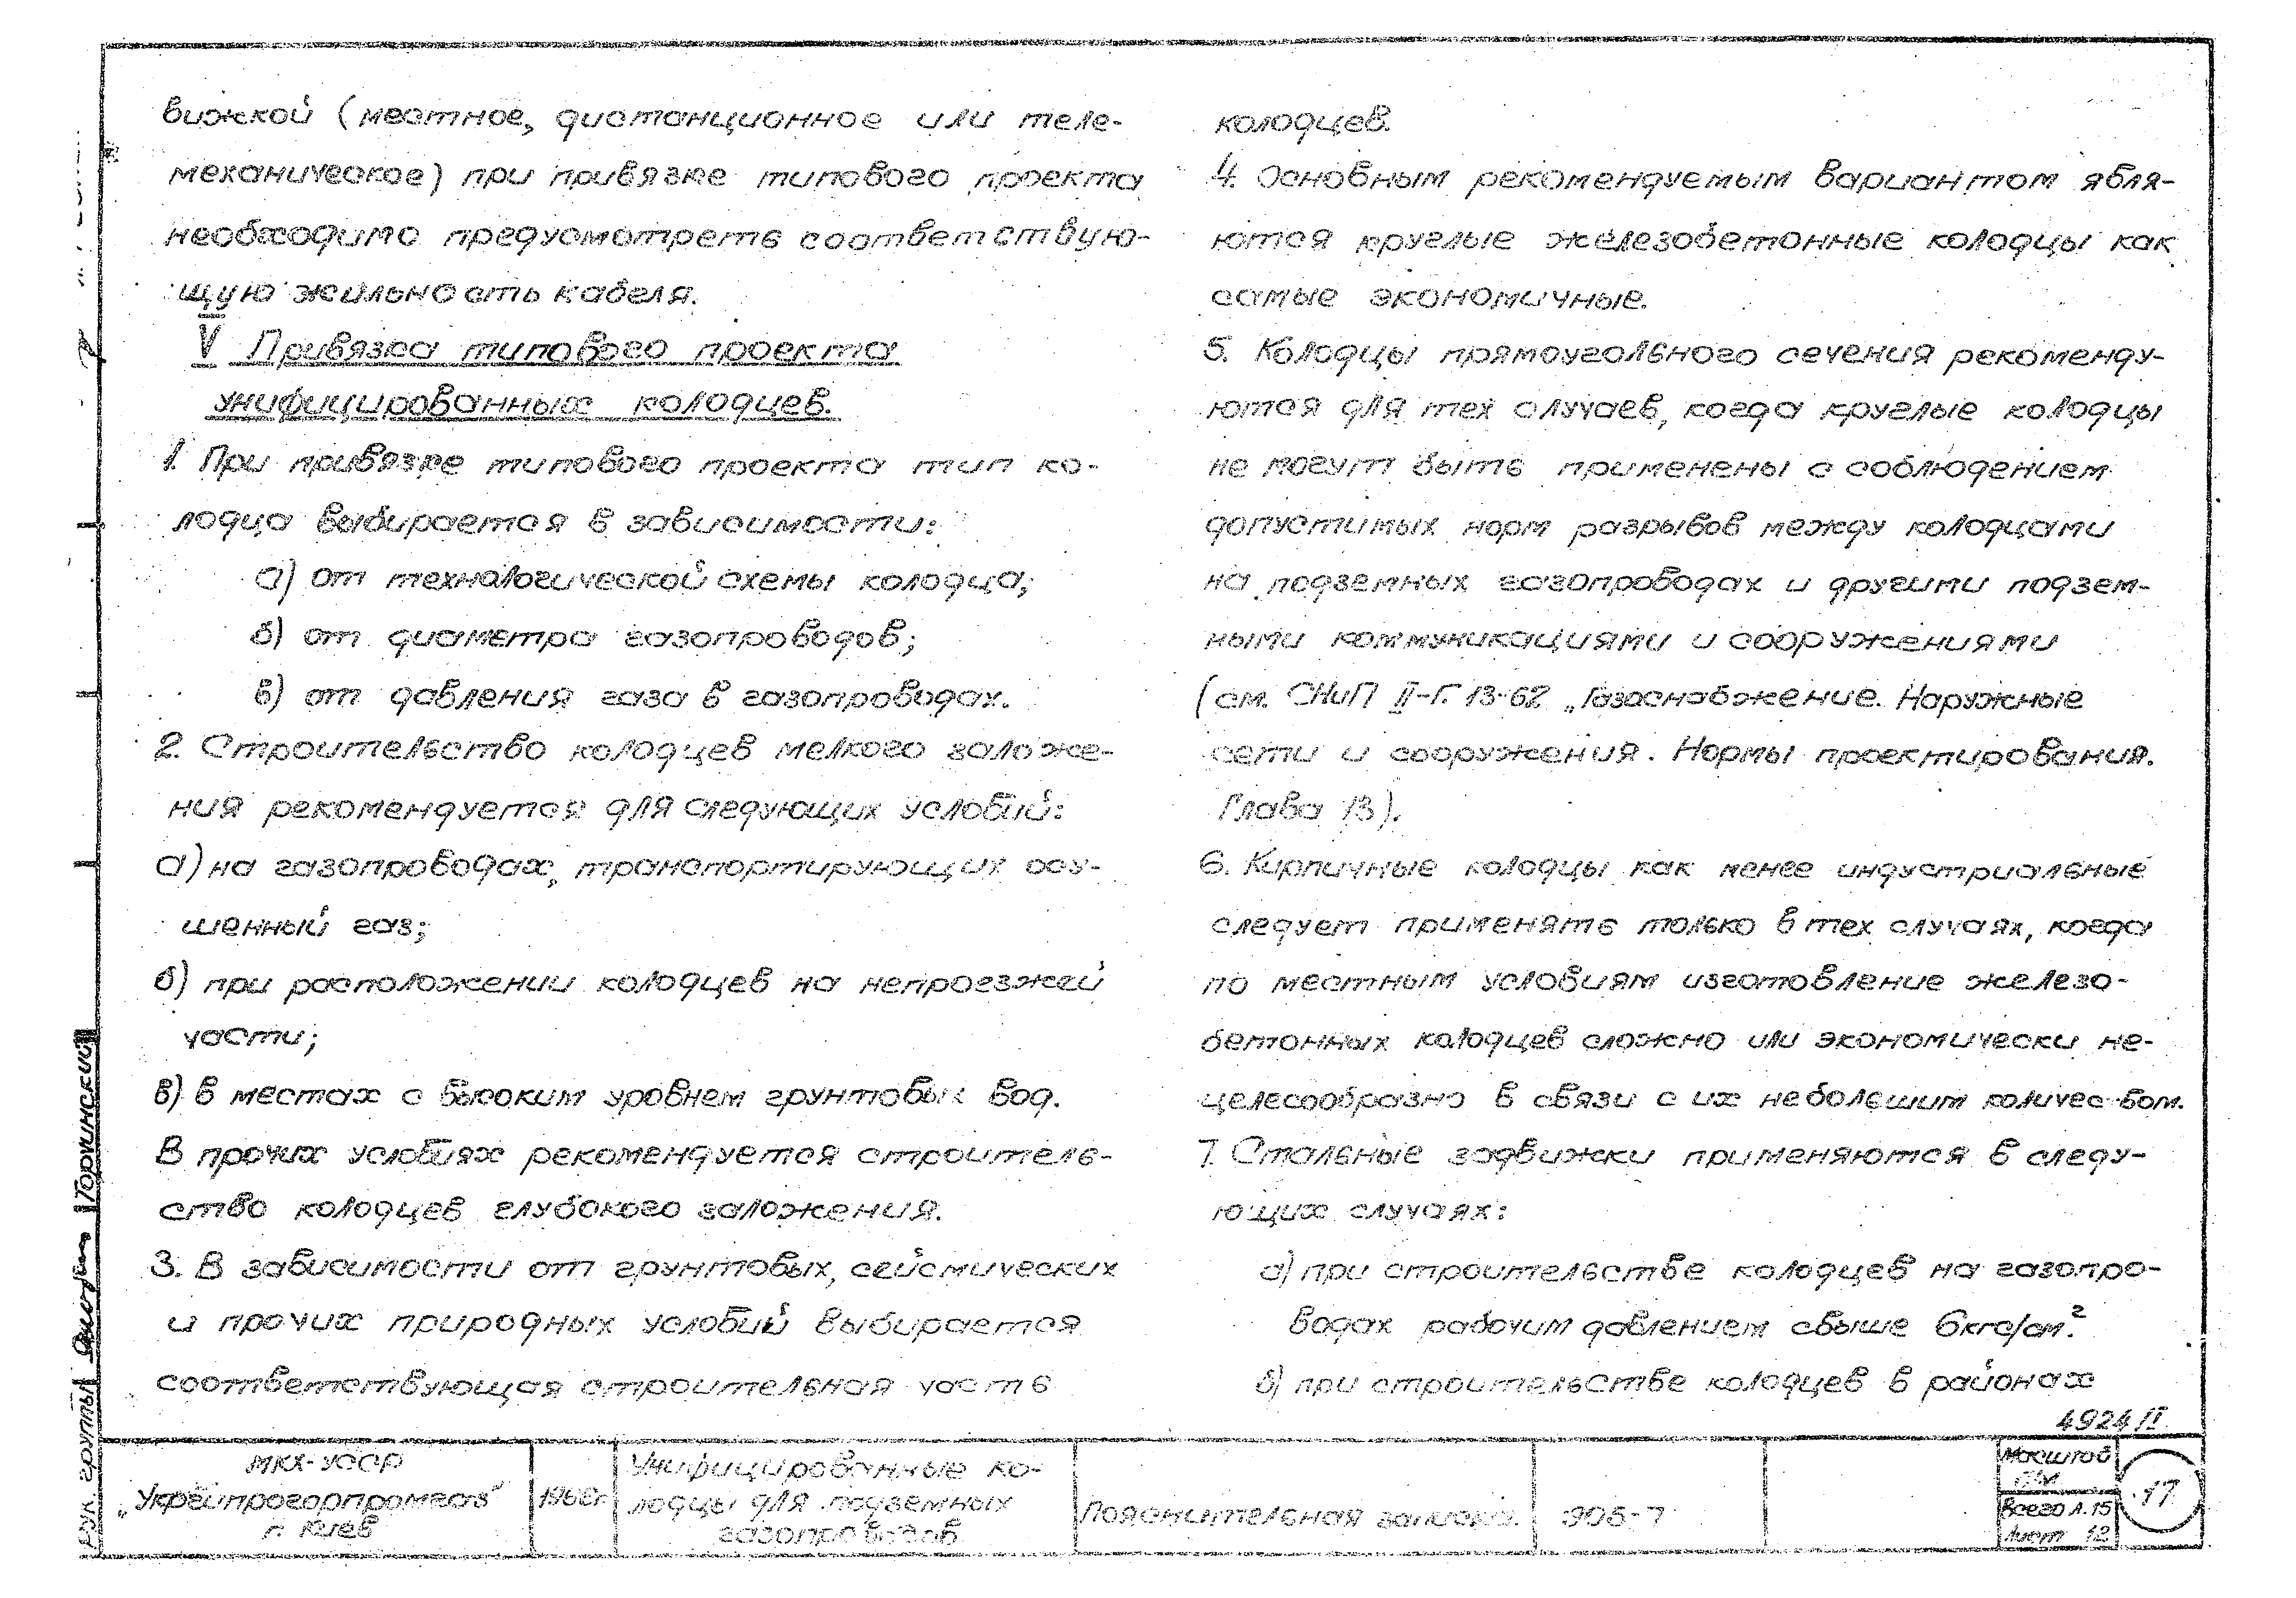 вижкой (местное, дистанционное или теле-
механическое) при привязке типового проекта
необходимо предусмотреть соответствую-
щую жильность кабеля.
V Привязка типового проекта
унифицированных колодцев.
1. При привязке типового проекта тип ко-
лодца выбирается в зависимости:
а) от технологической схемы колодца;
б) от диаметра газопроводов;
в) от давления газа в газопроводах.
2. Строительство колодцев мелкого заложе-
ния рекомендуется для следующих условий:
а) на газопроводах, транспортирующих осу-
шенный газ;
б) при расположении колодцев на непроезжей
части;
в) в местах с высоким уровнем грунтовых вод.
В прочих условиях рекомендуется строитель-
ство колодцев глубокого заложения.
3. В зависимости от грунтовых, сейсмических
и прочих природных условий выбирается
соответствующая строительная часть
колодцев.
4. Основным рекомендуемым вариантом явля-
ются круглые железобетонные колодцы как
самые экономичные.
5. Колодцы прямоугольного сечения рекоменду-
ются для тех случаев, когда круглые колодцы
не могут быть применены с соблюдением
допустимых норм разрывов между колодцами
на подземных газопроводах и другими подзем-
ными коммуникациями и сооружениями
(см. СНиП II-Г. 13-62 „Газоснабжение. Наружные
сети и сооружения. Нормы проектирования.
Глава 13).
6. Кирпичные колодцы как менее индустриальные
следует применять только в тех случаях, когда
по местным условиям изготовление железо-
бетонных колодцев сложно или экономически не-
целесообразно в связи с их небольшим количес вом.
7. Стальные задвижки применяются в следу-
ющих случаях:
а) при строительстве колодцев на газопро-
водах рабочим давлением свыше 6кгс/см.²
б) при строительстве колодцев в районах
4924/II
МКХ-УССР
„Укргипрогорпромгаз"
г. Киев
1968г
Унифицированные ко-
лодцы для подземных
газопроводов
Пояснительная записка.
905-7
Масштаб
Всего Л. 15
Лист 12
17
Рук. группы
Горчинский